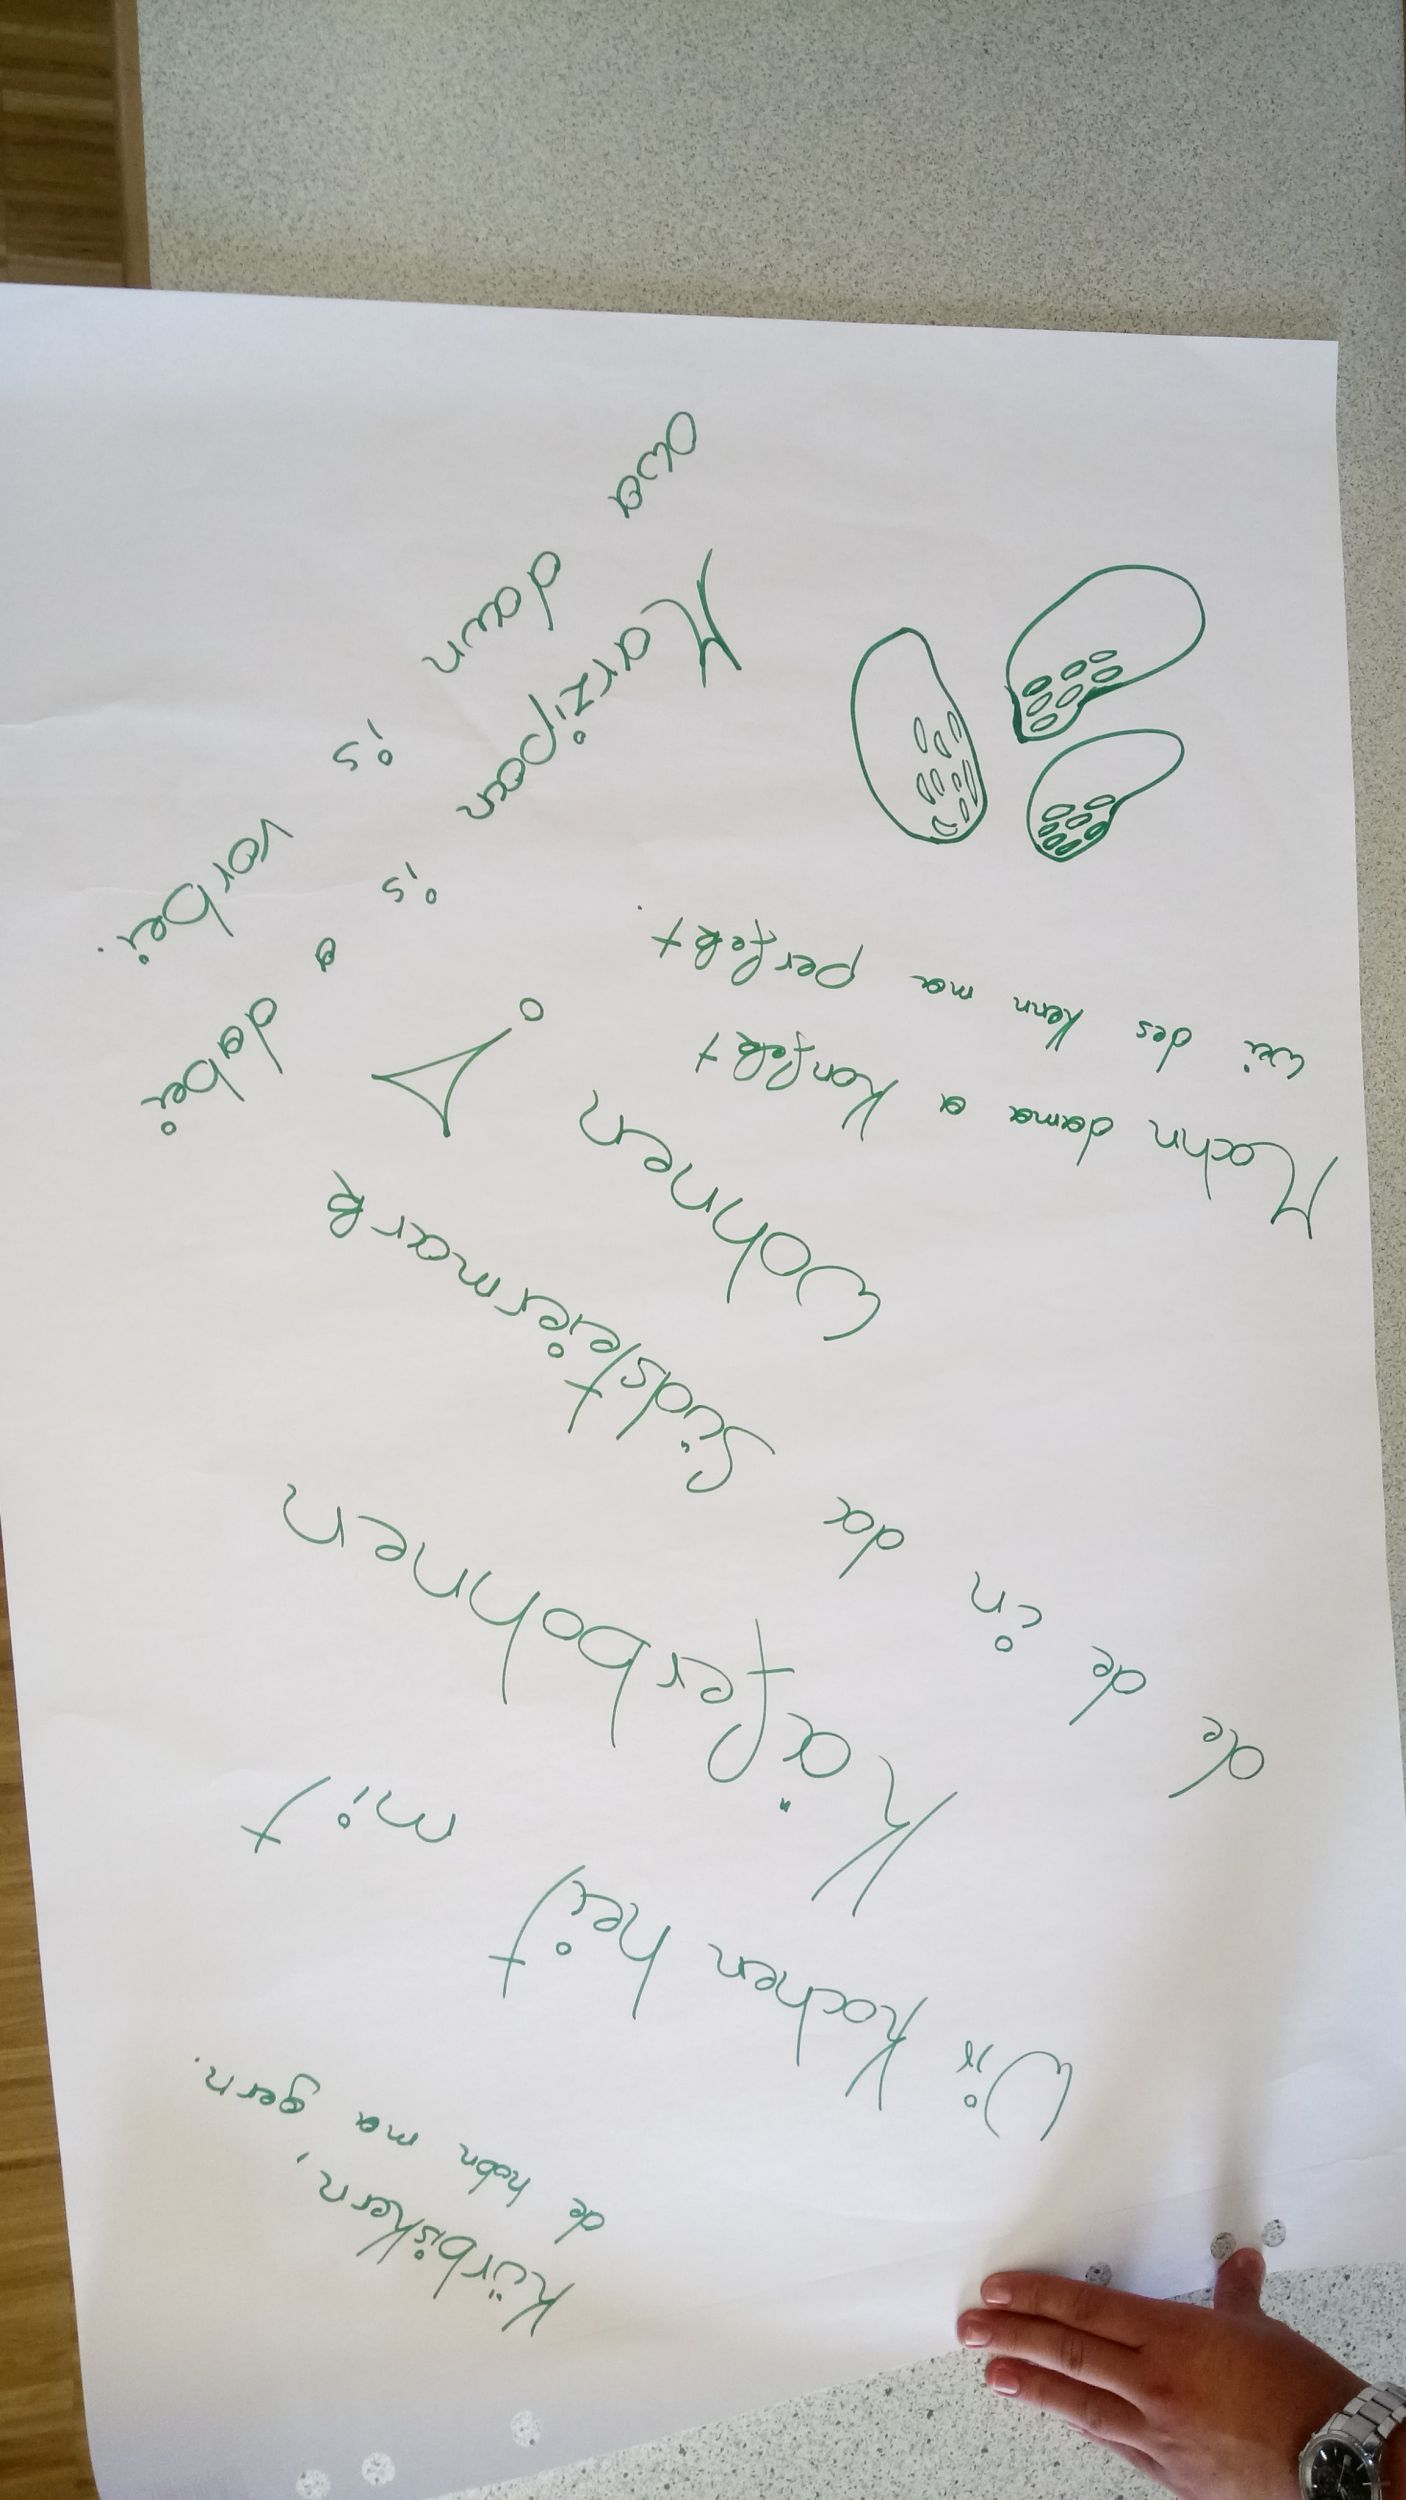 Wir kochen heit mit
Käferbohnen
de de in da Südsteiermark
wohnen!
Mochn dama a Konfekt
wei des kenn ma perfekt.
Kürbiskern,
de hobn ma gern.
Marzipan is a dabei
owa dann is vorbei.